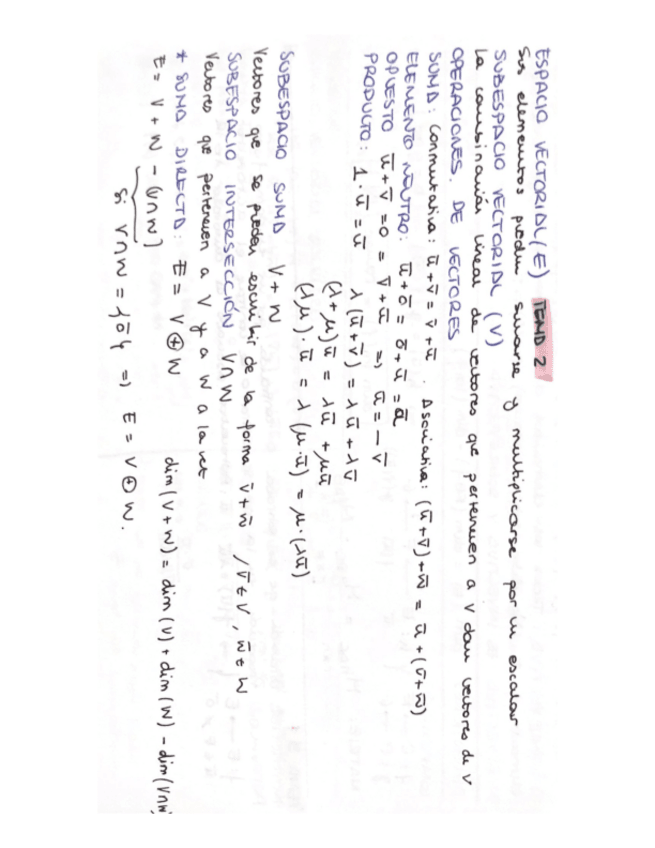 ESPACIO VECTORIAL (E) TEMA 2
Sus elementos pueden sumarse y multiplicarse por un escalar
SUBESPACIO VECTORIAL (V)
La combinación lineal de vectores que pertenecen a V dan vectores de V
OPERACIONES DE VECTORES
SUMA: Conmutativa: ū+v̄ = v̄+ū. Asociativa: (ū+v̄)+w̄ = ū+(v̄+w̄)
ELEMENTO NEUTRO: ū+ō = ō+ū = ū
OPUESTO ū+v̄ = 0 = v̄+ū ⇒ ū = -v̄
PRODUCTO: 1·ū = ū
λ(ū+v̄) = λū + λv̄
(λ+μ)ū = λū + μū
(λμ)·ū = λ(μ·ū) = μ·(λū)
SUBESPACIO SUMA V+W
Vectores que se puedan escribir de la forma v̄+w̄ / v̄ ∈ V, w̄ ∈ W
SUBESPACIO INTERSECCIÓN V∩W
Vectores que pertenecen a V y a W a la vez
* SUMA DIRECTA: E = V⊕W
dim(V+W) = dim(V) + dim(W) - dim(V∩W)
E = V + W - (V∩W)
Si V∩W = {ō} ⇒ E = V⊕W.